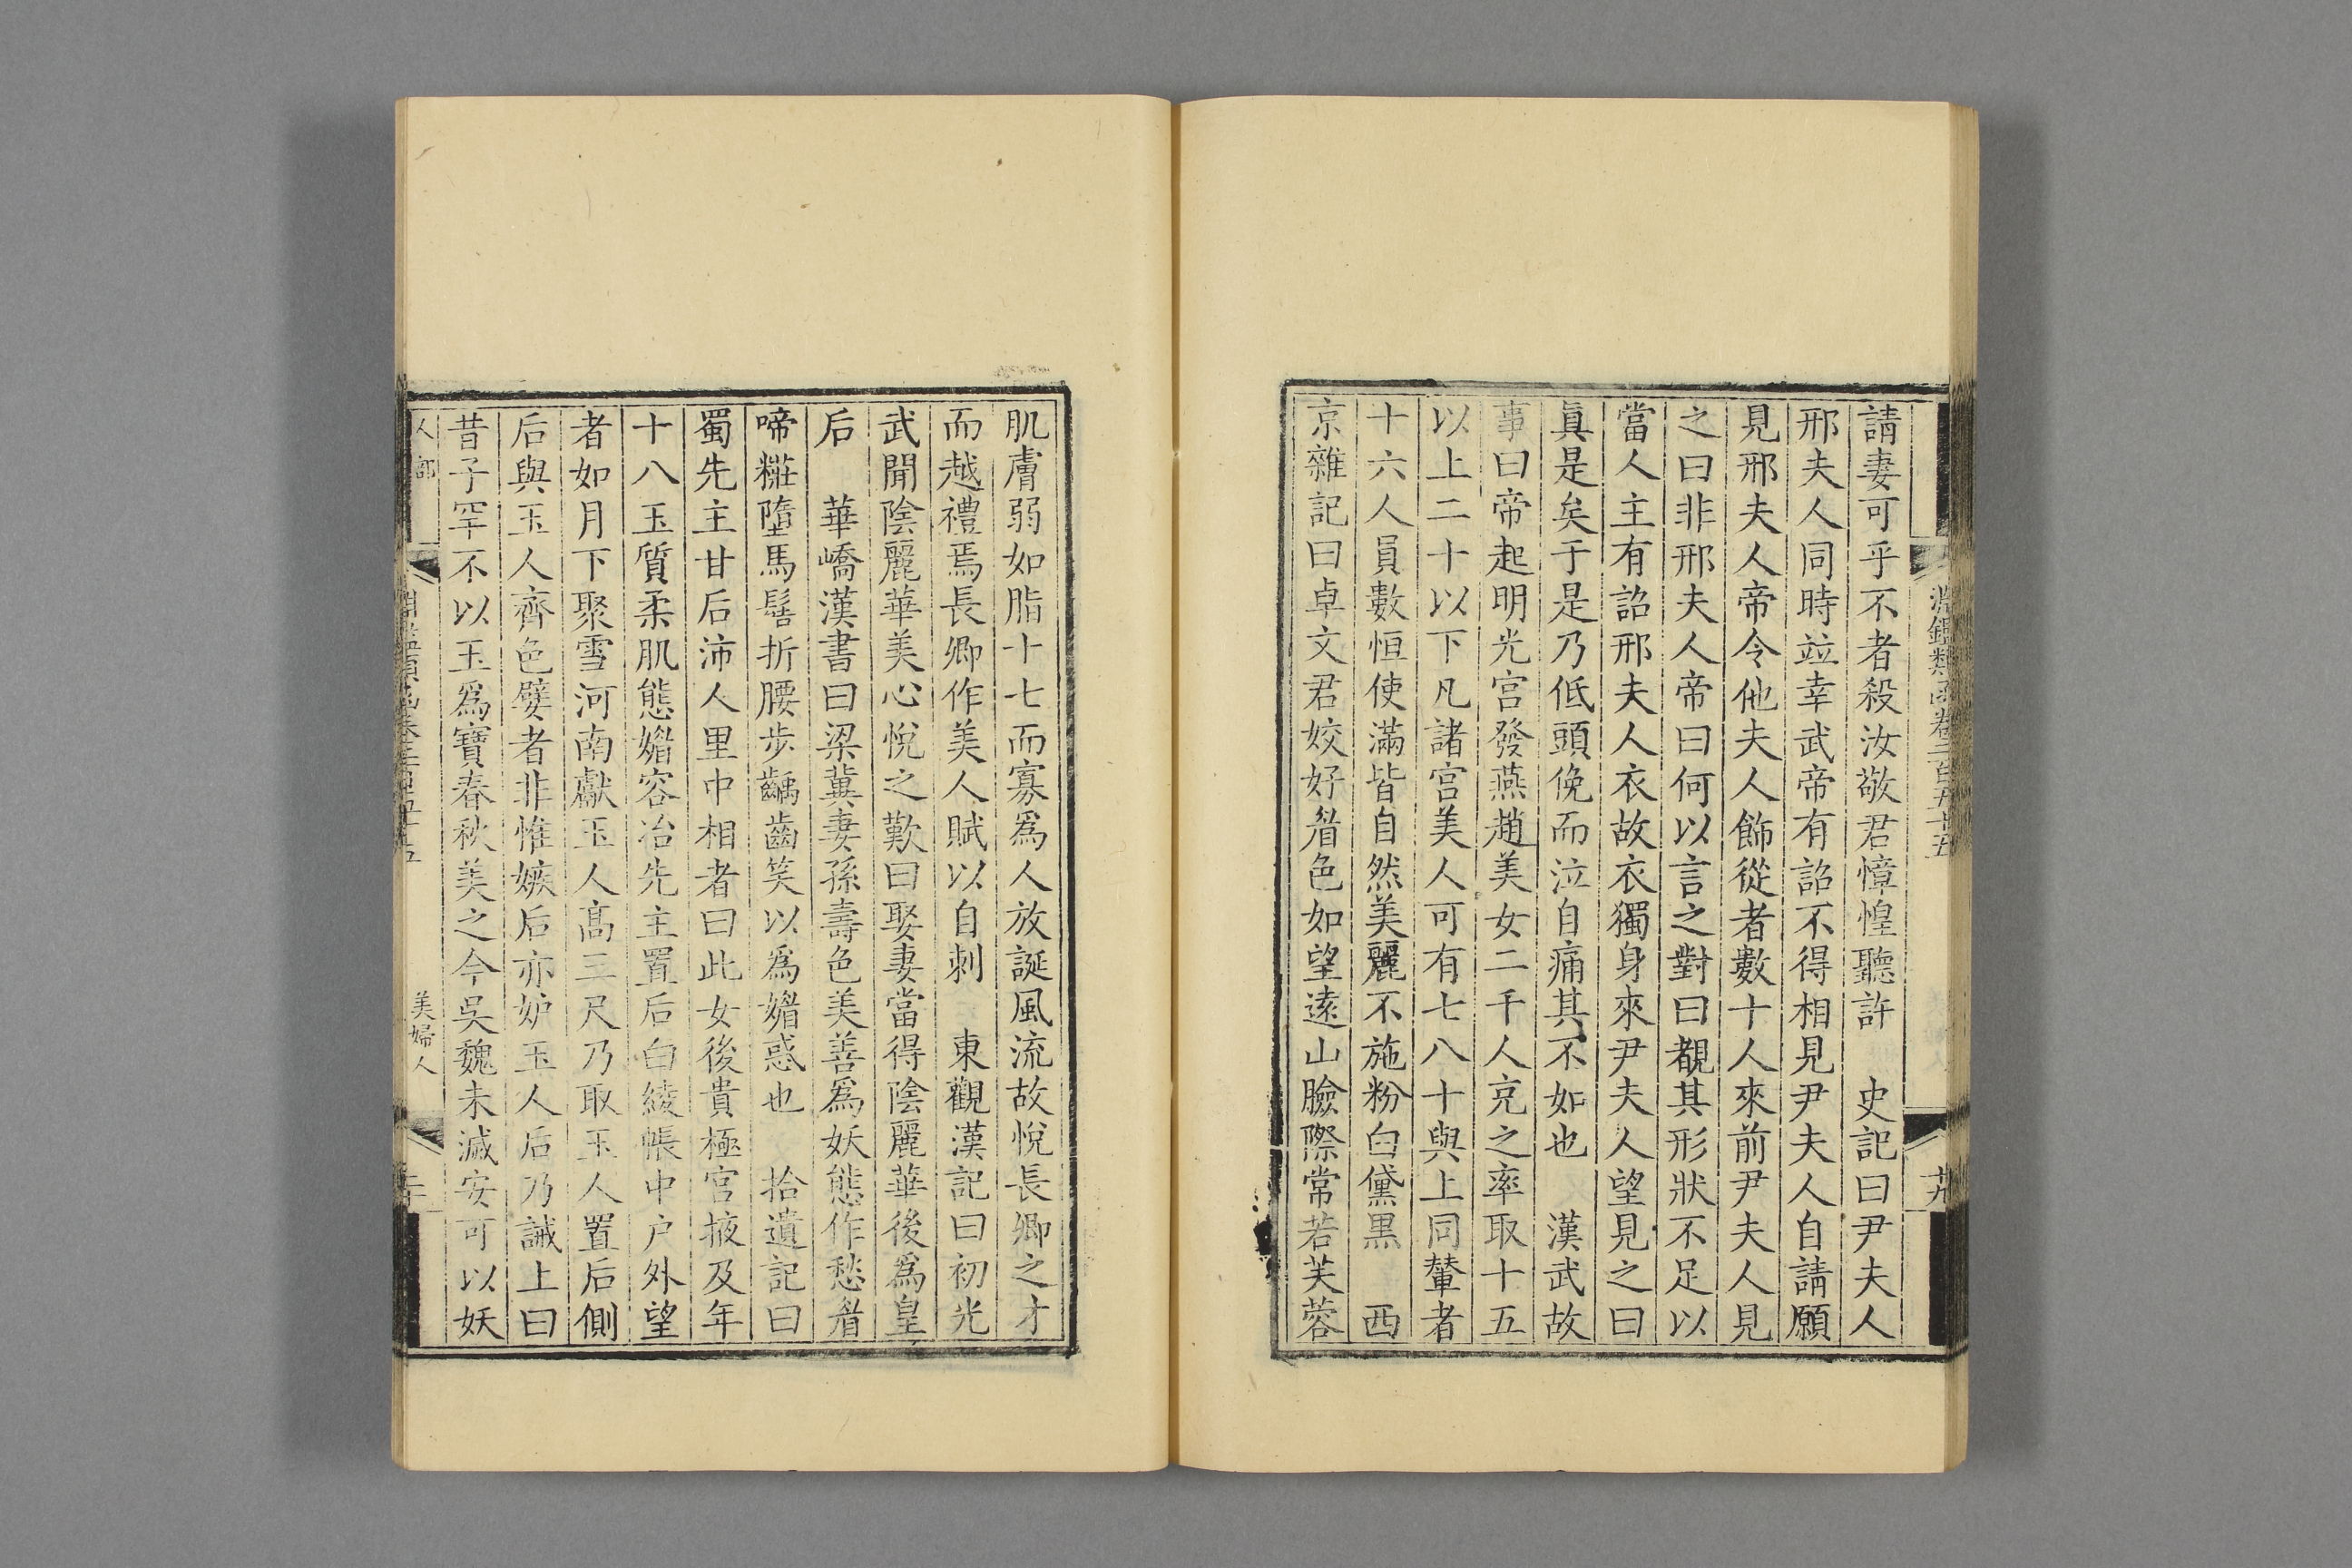 淵鑑類函卷二百五十五
廿九
請妻可乎不者殺汝敬君慞惶聽許　史記曰尹夫人
邢夫人同時竝幸武帝有詔不得相見尹夫人自請願
見邢夫人帝令他夫人飾從者數十人來前尹夫人見
之曰非邢夫人帝曰何以言之對曰覩其形狀不足以
當人主有詔邢夫人衣故衣獨身來尹夫人望見之曰
眞是矣于是乃低頭俛而泣自痛其不如也　漢武故
事曰帝起明光宮發燕趙美女二千人充之率取十五
以上二十以下凡諸宮美人可有七八十與上同輦者
十六人員數恒使滿皆自然美麗不施粉白黛黑　西
京雜記曰卓文君姣好眉色如望遠山臉際常若芙蓉
肌膚弱如脂十七而寡爲人放誕風流故悅長卿之才
而越禮焉長卿作美人賦以自刺　東觀漢記曰初光
武聞陰麗華美心悅之歎曰娶妻當得陰麗華後爲皇
后　華嶠漢書曰梁冀妻孫壽色美善爲妖態作愁眉
啼糚墮馬髻折腰步齲齒笑以爲媚惑也　拾遺記曰
蜀先主甘后沛人里中相者曰此女後貴極宮掖及年
十八玉質柔肌態媚容冶先主置后白綾帳中戶外望
者如月下聚雪河南獻玉人高三尺乃取玉人置后側
后與玉人齊色嬖者非惟嫉后亦妒玉人后乃誡上曰
昔子罕不以玉爲寶春秋美之今吳魏未滅安可以妖
人部
美婦人